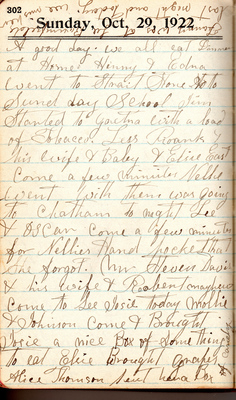 302
Sunday, Oct. 29, 1922
A good day. we all eat Dinner
at Home Henny & Edna
went to Strait Stone to
Sunday School Jim
Started to Gretna with a load
of Tobacco. Lee Roark
his wife & Baby & Elsie East
Come a few minutes Nellie
went with them was going
to Chatham to night Lee
& OScar Come a few minutes
for Nellies Hand pocket that
She forgot. Mr Stevens Davis
& his wife & Robert
come to See Josie today Mollie
& Johnson Come & Brought
Josie a nice Box of Something
to eat Elsie Brought grapes
Alice Thomson Sent her a Box